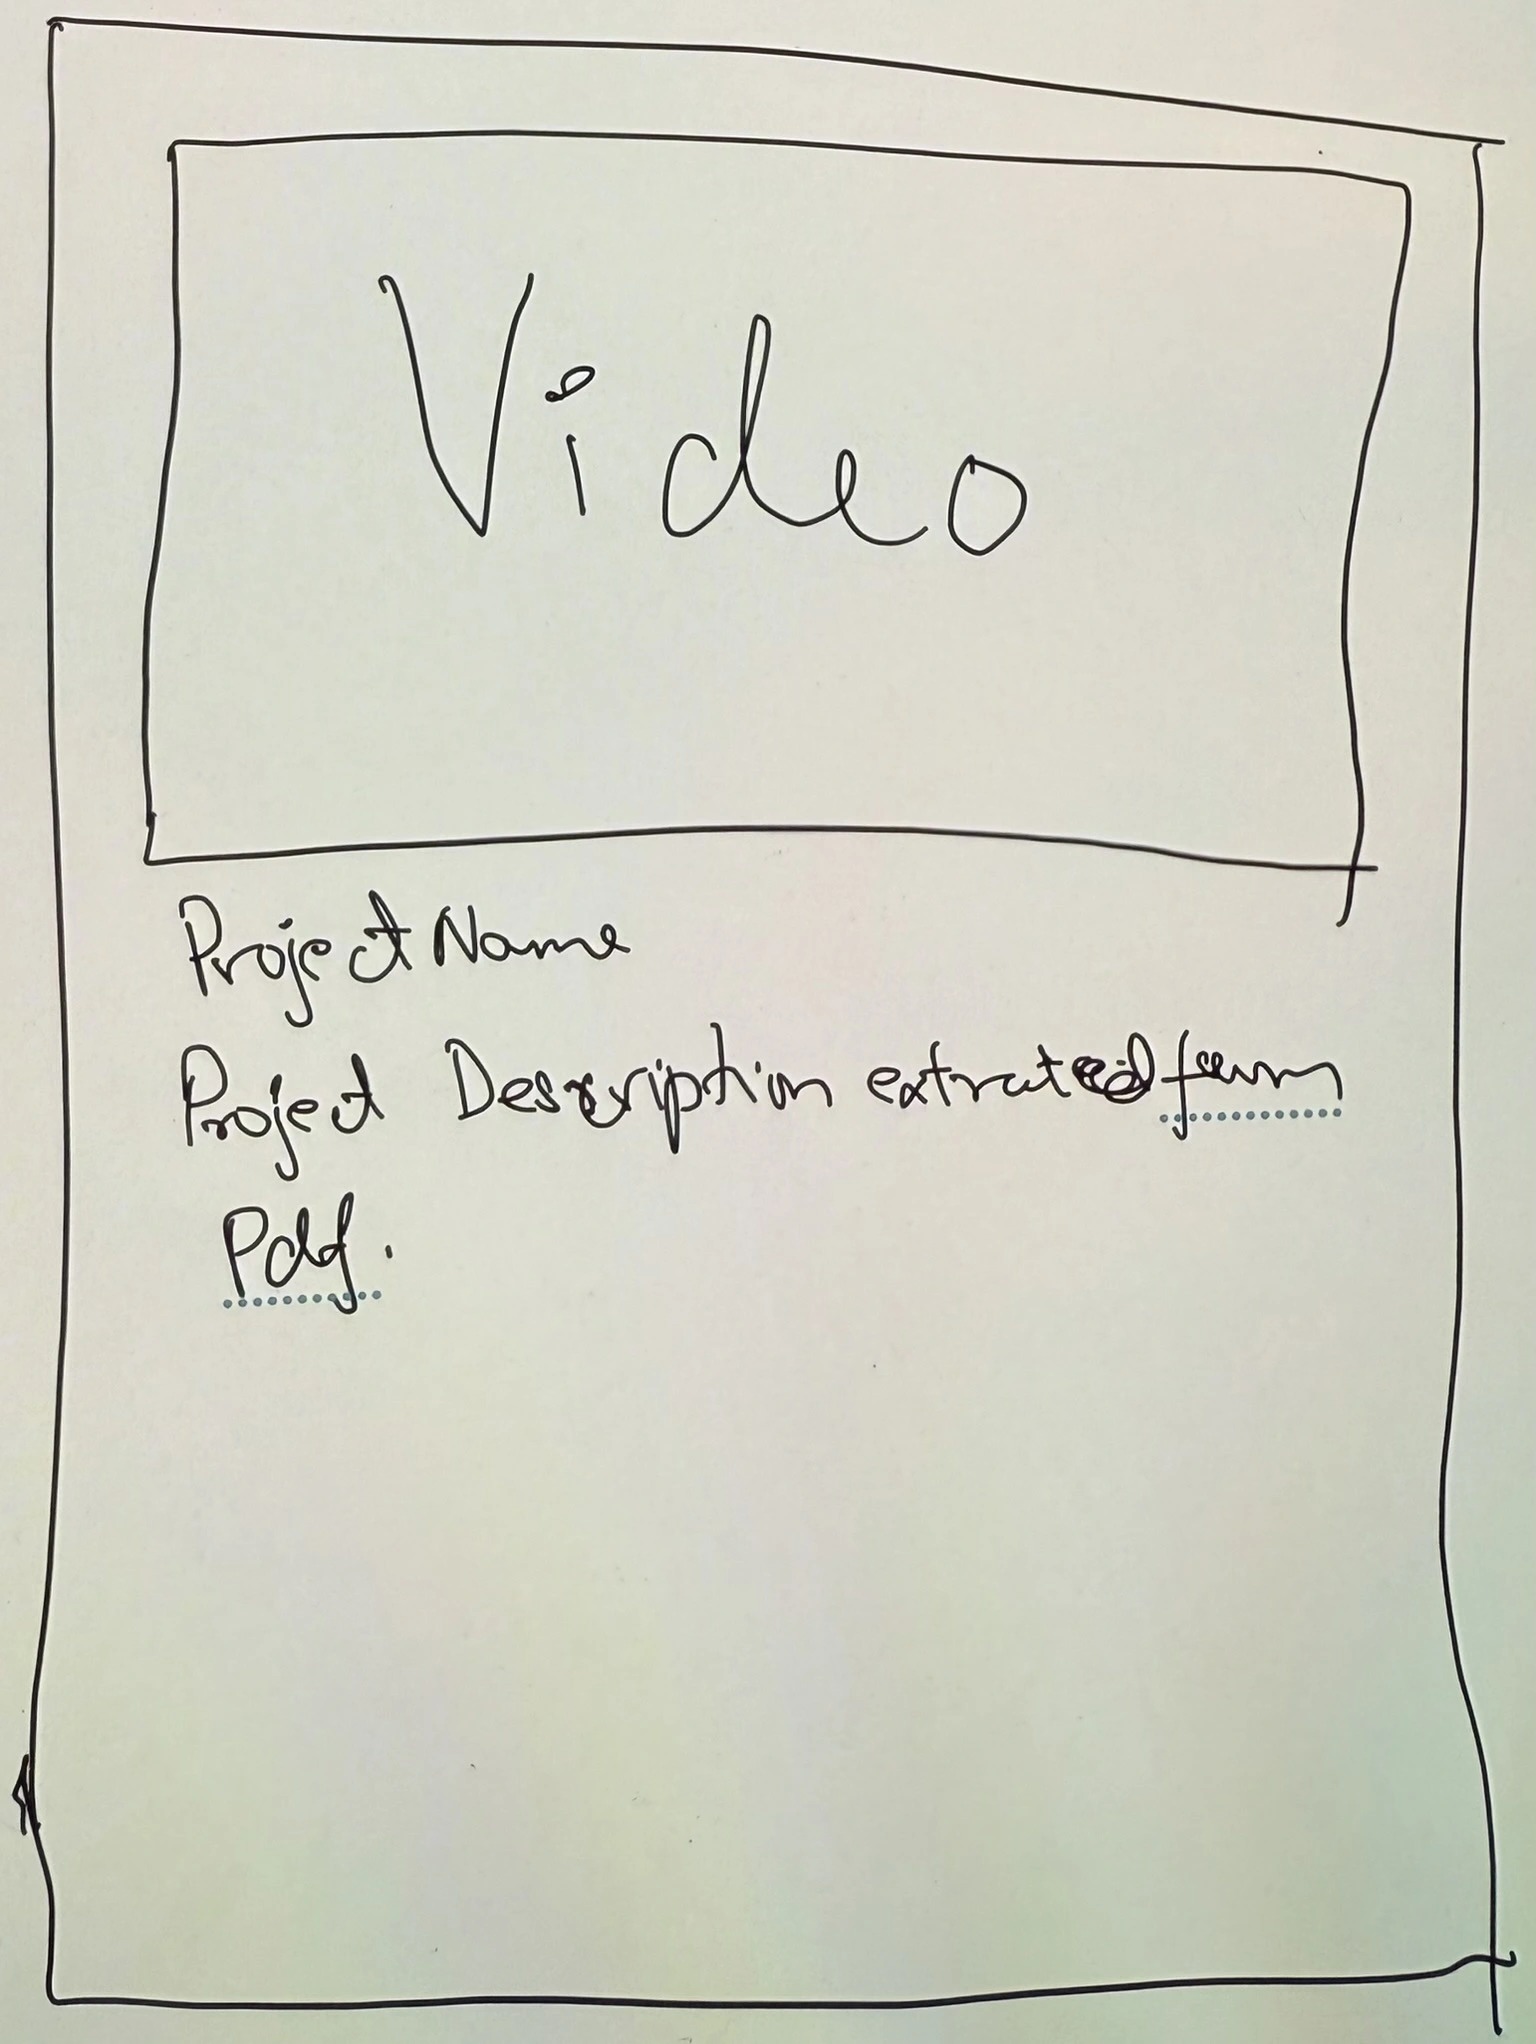 Video
Project Name
Project Description extrated from
Pdf.